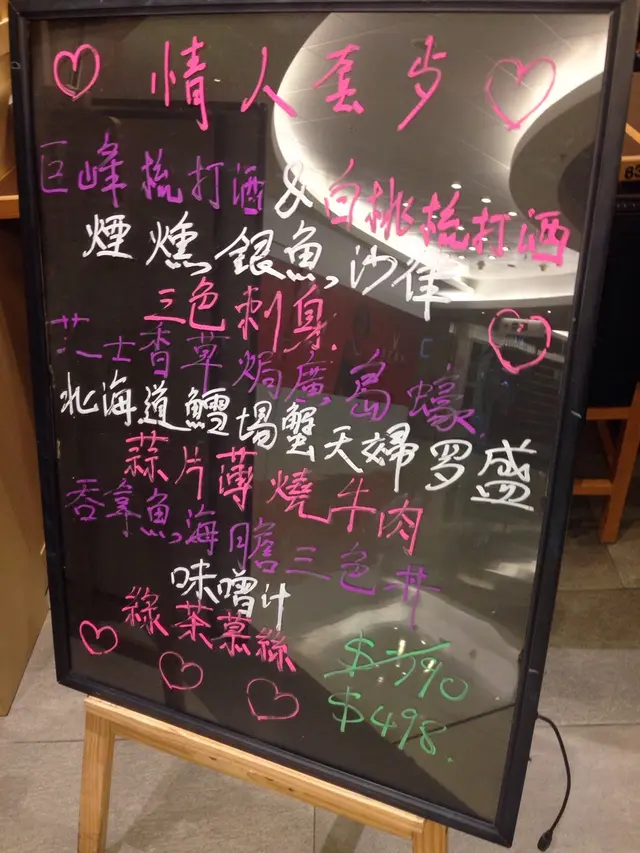 情人套歺
巨峰梳打酒 & 白桃梳打酒
煙燻銀魚沙律
三色刺身
芝士香草焗廣島蠔
北海道鱈場蟹天婦罗盛
蒜片薄燒牛肉
吞拿魚海胆三色丼
味噌汁
綠茶慕絲
$790
$498.